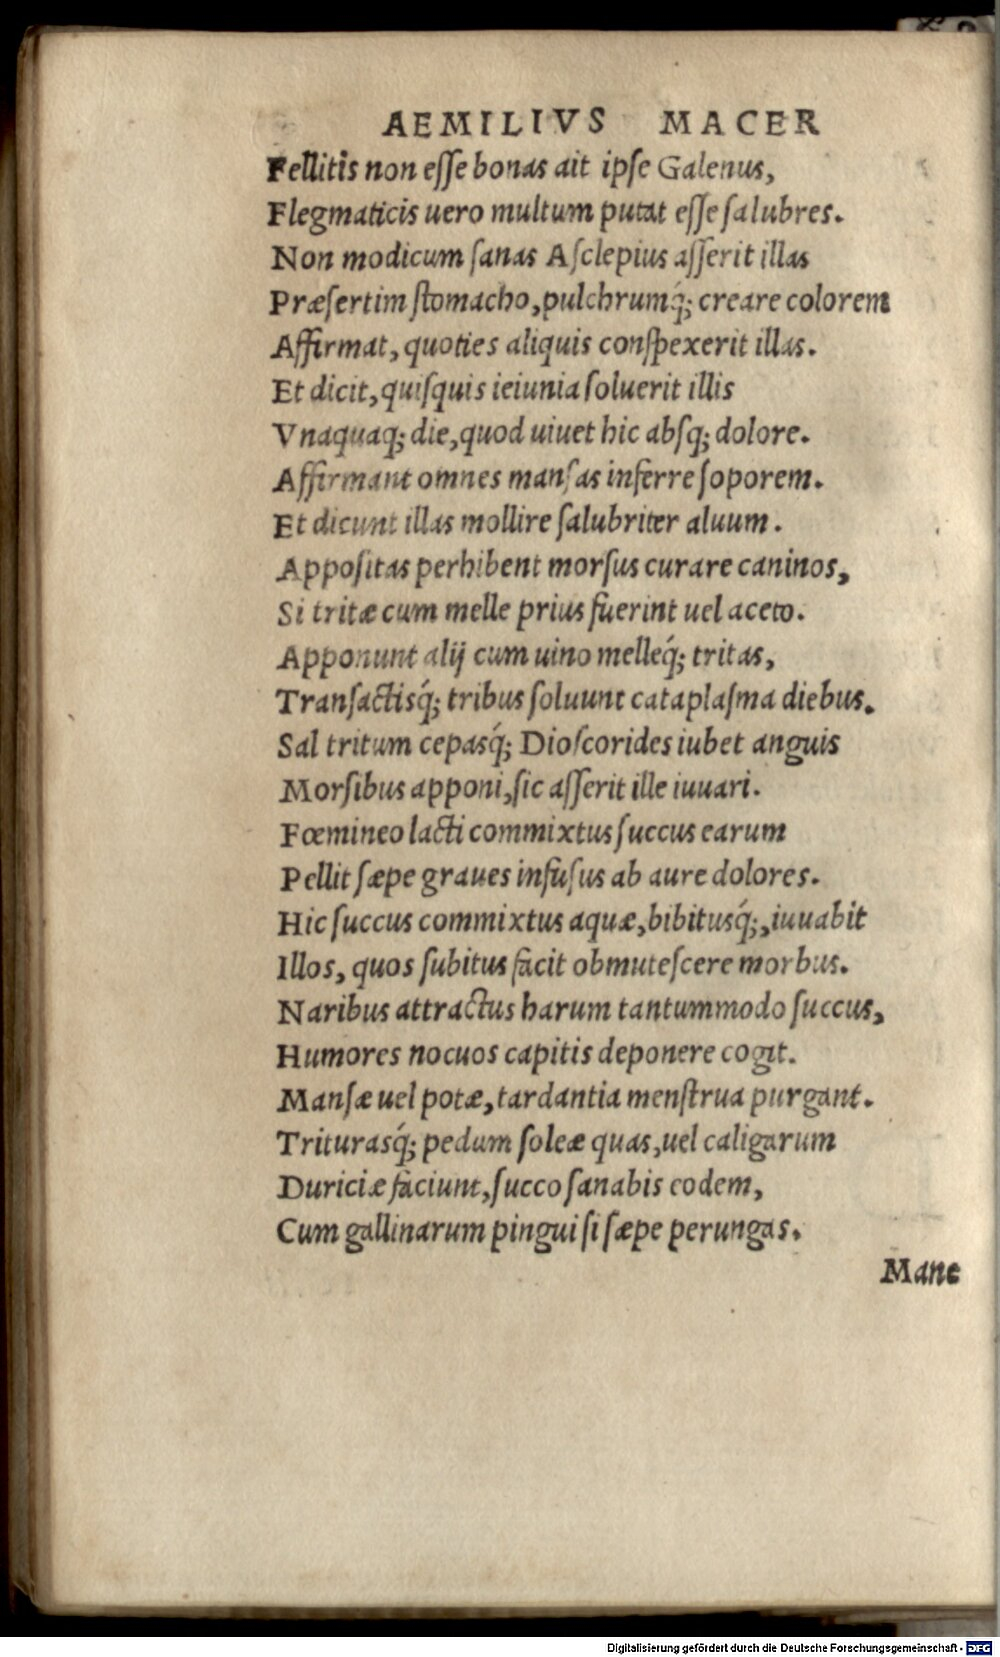 AEMILIVS MACER
Fellitis non eſſe bonas ait ipſe Galenus,
Flegmaticis uero multum putat eſſe ſalubres.
Non modicum ſanas Aſclepius aſſerit illas
Præſertim ſtomacho, pulchrumq́; creare colorem
Affirmat, quoties aliquis conſpexerit illas.
Et dicit, quiſquis ieiunia ſoluerit illis
Vnaquaq; die, quod uiuet hic abſq; dolore.
Affirmant omnes manſas inferre ſoporem.
Et dicunt illas mollire ſalubriter aluum.
Appoſitas perhibent morſus curare caninos,
Si tritæ cum melle prius fuerint uel aceto.
Apponunt alij cum uino melleq́; tritas,
Tranſactisq́; tribus ſoluunt cataplaſma diebus.
Sal tritum cepasq́; Dioſcorides iubet anguis
Morſibus apponi, ſic aſſerit ille iuuari.
Fœmineo lacti commixtus ſuccus earum
Pellit ſæpe graues infuſus ab aure dolores.
Hic ſuccus commixtus aquæ, bibitusq́;, iuuabit
Illos, quos ſubitus facit obmuteſcere morbus.
Naribus attractus harum tantummodo ſuccus,
Humores nocuos capitis deponere cogit.
Manſæ uel potæ, tardantia menſtrua purgant.
Triturasq́; pedum ſoleæ quas, uel caligarum
Duriciæ faciunt, ſucco ſanabis eodem,
Cum gallinarum pingui ſi ſæpe perungas.
Mane
Digitalisierung gefördert durch die Deutsche Forschungsgemeinschaft - DFG